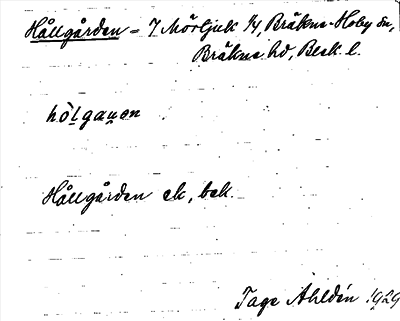 Hållgården = 7 Mörtjuk 1/4, Bräkne-Hoby sn,
Bräkne hd, Blek. l.
hòlgaṇen
Hållgården ek, bek.
Tage Ahldén 1929